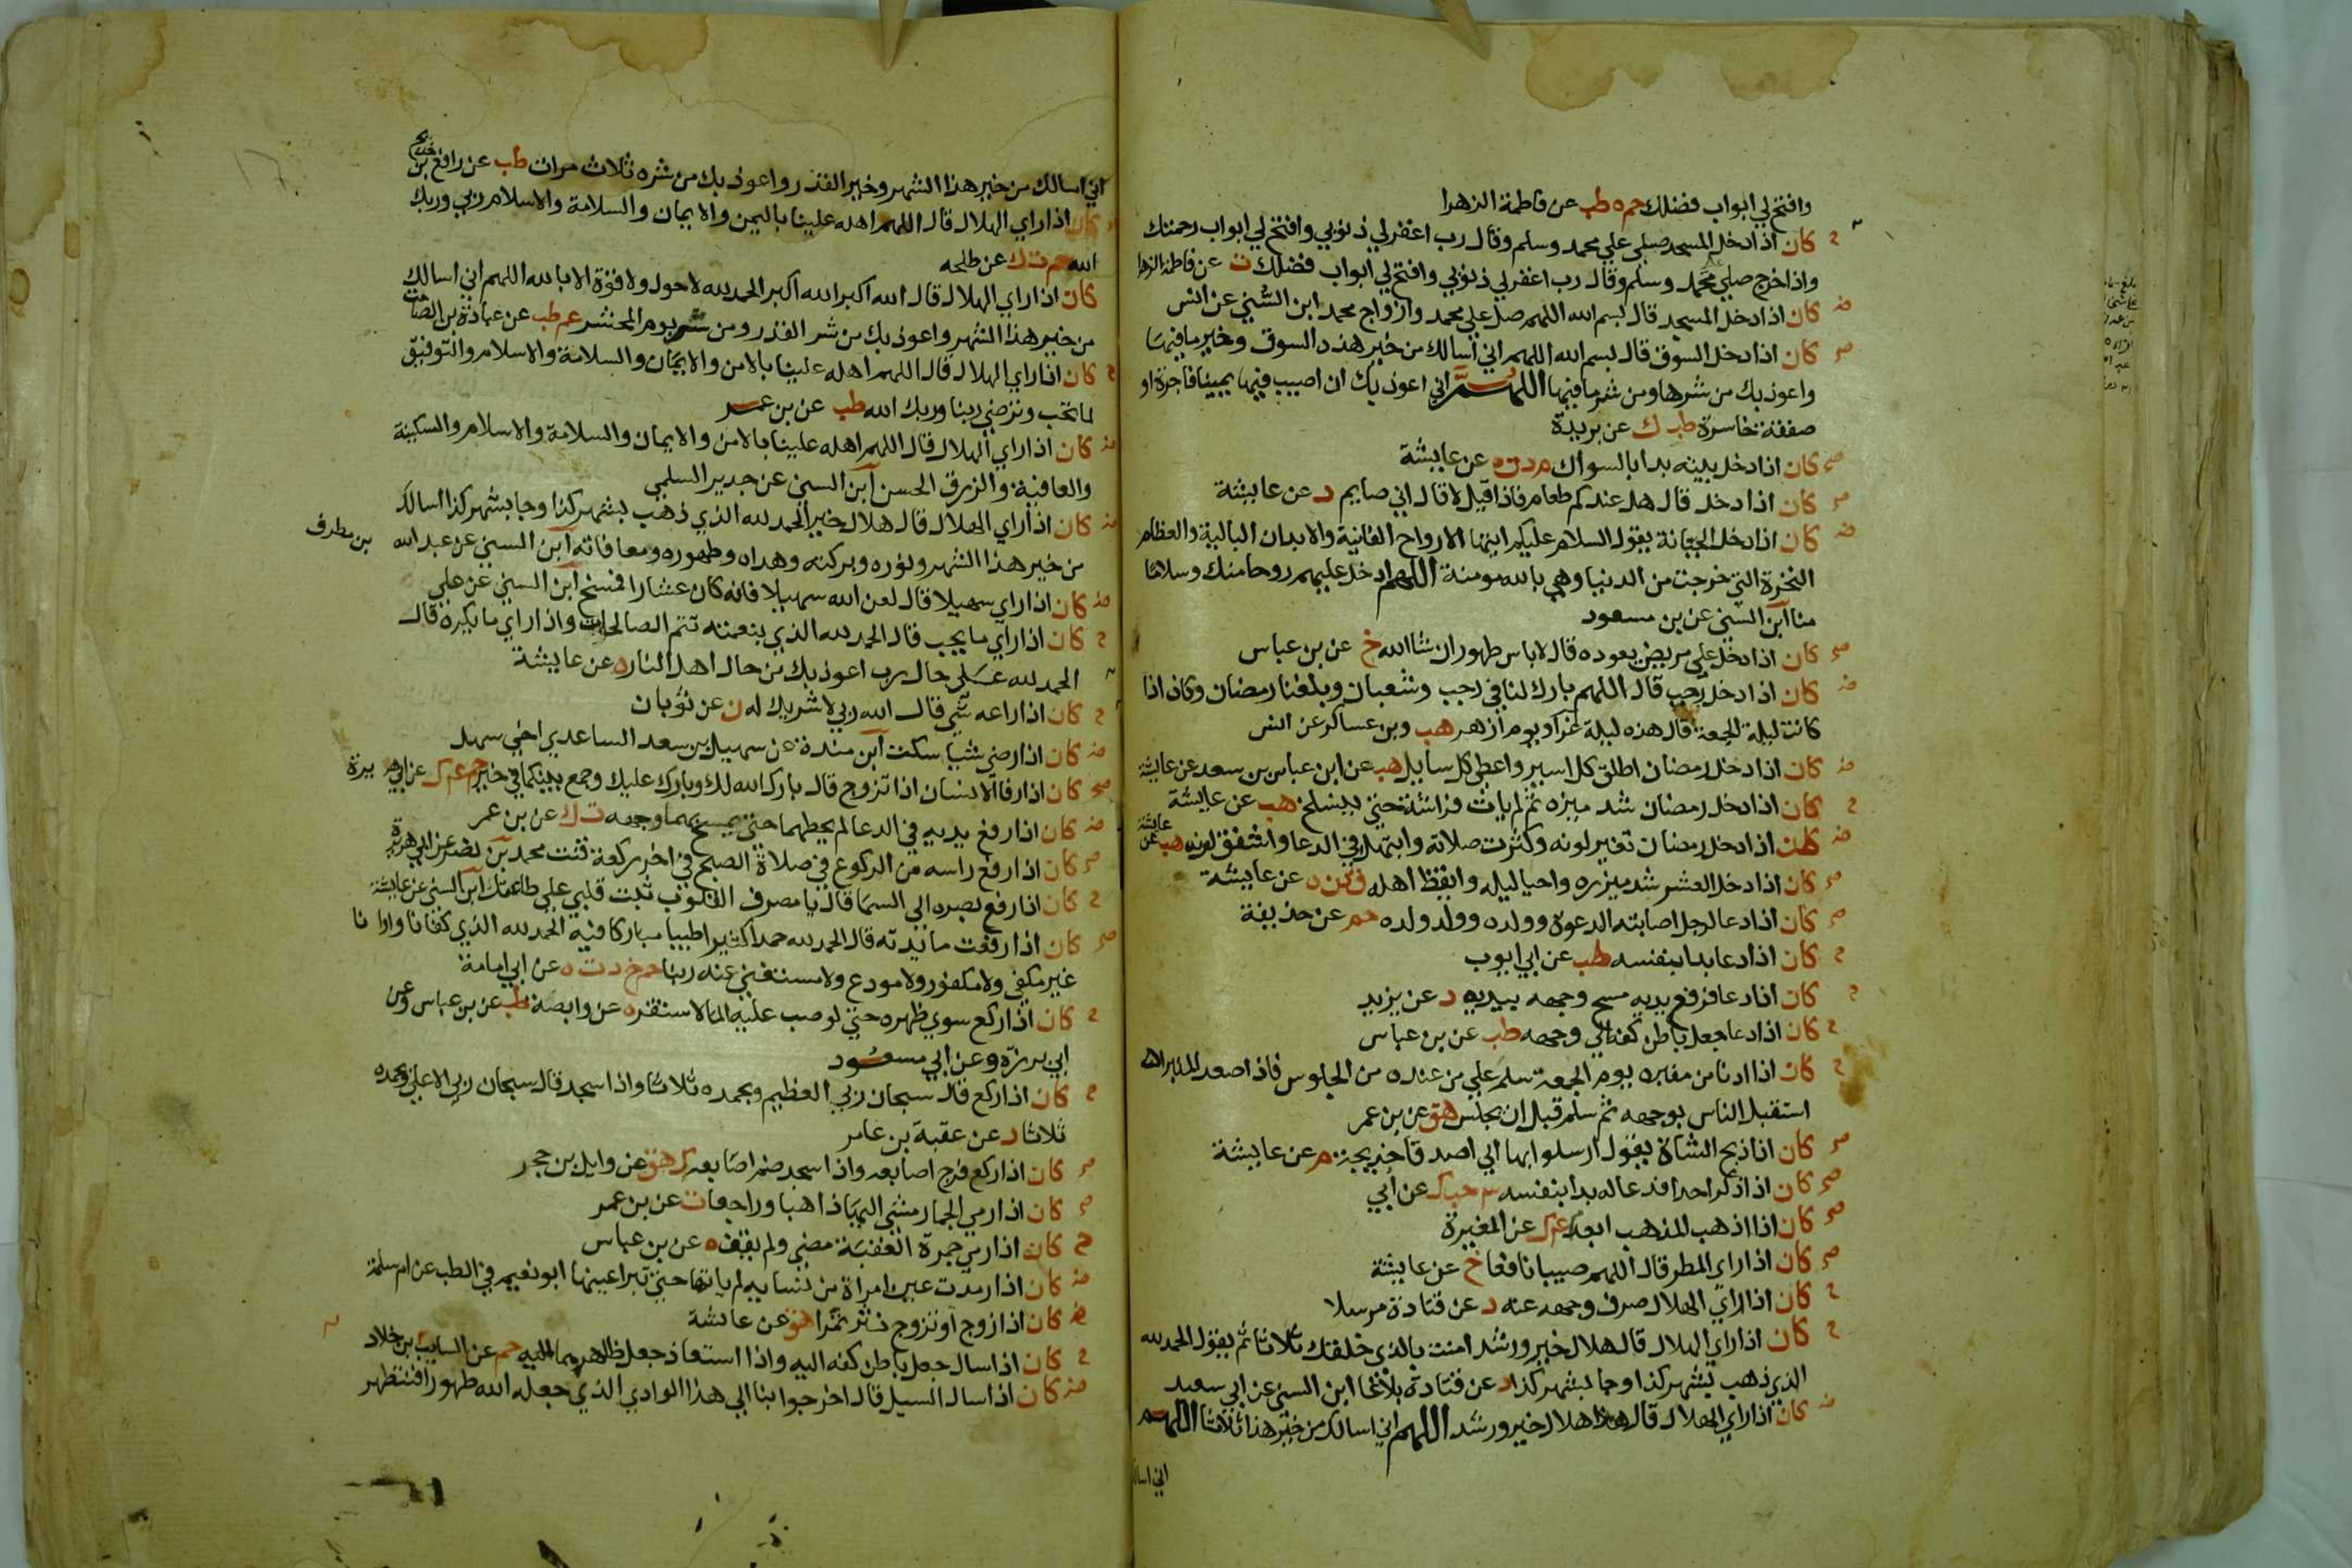 وافتح لي ابواب فضلك حم ه طب عن فاطمة الزهرا
كان اذا دخل المسجد صلى علي محمد وسلم وقال رب اغفر لي ذنوبي وافتح لي ابواب رحمتك
واذا خرج صلي علي محمد وسلم وقال رب اغفر لي ذنوبي وافتح لي ابواب فضلك ت عن فاطمة الزهرا
كان اذا دخل المسجد قال بسم الله اللهم صل علي محمد وازواج محمد ابن السني عن انس
كان اذا دخل السوق قال بسم الله اللهم اني اسالك من خير هذه السوق وخير ما فيها
واعوذ بك من شرها ومن شر ما فيها اللهم اني اعوذ بك ان اصيب فيها يمينا فاجرة او
صفقة خاسرة طب ك عن بريدة
كان اذا دخل بيته بدا بالسواك م د ن ه عن عايشة
كان اذا دخل قال هل عندكم طعام فاذا قيل لا قال اني صايم د عن عايشة
كان اذا دخل الجبانة يقول السلام عليكم ايتها الارواح الفانية والابدان البالية والعظام
النخرة التي خرجت من الدنيا وهي بالله مومنة اللهم ادخل عليهم روحا منك وسلاما
منا ابن السني عن بن مسعود
كان اذا دخل على مريض يعوده قال لا باس طهور ان شاالله خ عن بن عباس
كان اذا دخل رجب قال اللهم بارك لنا في رجب وشعبان وبلغنا رمضان وكان اذا
كانت ليلة الجمعة قال هذه ليلة غرا ويوم ازهر هب وبن عساكر عن انس
كان اذا دخل رمضان اطلق كل اسير واعطي كل سايل هب عن ابن عباس بن سعد عن عايشة
كان اذا دخل رمضان شد ميزره ثم لم يات فراشه حتي ينسلخ هب عن عايشة
كان اذا دخل رمضان تغير لونه وكثرت صلاته وابتهل في الدعا واشفق لونه هب عن عايشة
كان اذا دخل العشر شد ميزره واحيا ليله وايقظ اهله ق د ن ه عن عايشة
كان اذا دعا لرجل اصابته الدعوة وولده وولد ولده حم عن حذيفة
كان اذا دعا بدا بنفسه طب عن ابي ايوب
كان اذا دعا فرفع يديه مسح وجهه بيديه د عن يزيد
كان اذا دعا جعل باطن كفه الي وجهه طب عن بن عباس
كان اذا دنا من منبره يوم الجمعة سلم علي من عنده من الجلوس فاذا صعد المنبر
استقبل الناس بوجهه ثم سلم قبل ان يجلس هق عن بن عمر
كان اذا ذبح الشاة يقول ارسلوا بها الي اصدقا خديجة م عن عايشة
كان اذا ذكر احدا فدعا له بدا بنفسه حب ك عن ابي
كان اذا ذهب المذهب ابعد ك عن المغيرة
كان اذا راي المطر قال اللهم صيبا نافعا خ عن عايشة
كان اذا راي الهلال صرف وجهه عنه د عن قتادة مرسلا
كان اذا راي الهلال قال هلال خير ورشد امنت بالذي خلقك ثلاثا ثم يقول الحمد لله
الذي ذهب بشهر كذا وجا بشهر كذا د عن قتادة بلاغا ابن السني عن ابي سعيد
كان اذا راي الهلال قال هلال خير ورشد اللهم اني اسالك من خير هذا ثلاثا اللهم
اني اسالك
اني اسالك من خير هذا الشهر وخير القدر واعوذ بك من شره ثلاث مرات طب عن رافع بن خديج
كان اذا راي الهلال قال اللهم اهله علينا باليمن والايمان والسلامة والاسلام ربي وربك
الله حم ت ك عن طلحه
كان اذا راي الهلال قال الله اكبر الله اكبر الحمد لله لا حول ولا قوة الا بالله اللهم اني اسالك
من خير هذا الشهر واعوذ بك من شر القدر ومن شر يوم المحشر عم طب عن عبادة بن الصامت
كان اذا راي الهلال قال اللهم اهله علينا بالامن والايمان والسلامة والاسلام والتوفيق
لما تحب وترضي ربنا وربك الله طب عن بن عمر
كان اذا راي الهلال قال اللهم اهله علينا بالامن والايمان والسلامة والاسلام والسكينة
والعافية والرزق الحسن ابن السني عن حدير السلمي
كان اذا راي الهلال قال هلال خير الحمد لله الذي ذهب بشهر كذا وجا بشهر كذا اسالك
من خير هذا الشهر ونوره وبركته وهداه وطهوره ومعافاته ابن السني عن عبد الله بن مطرف
كان اذا راي سهيلا قال لعن الله سهيلا فانه كان عشارا فمسخ ابن السني عن علي
كان اذا راي ما يحب قال الحمد لله الذي بنعمته تتم الصالحات واذا راي ما يكره قال
الحمد لله علي حال رب اعوذ بك من حال اهل النار ه عن عايشة
كان اذا راعه شي قال الله ربي لا شريك له ن عن ثوبان
كان اذا رضي شيا سكت ابن مندة عن سهيل بن سعد الساعدي اخي سهل
كان اذا رفا الانسان اذا تزوج قال بارك الله لك وبارك عليك وجمع بينكما في خير حم ك عن ابي هريرة
كان اذا رفع يديه في الدعا لم يحطهما حتي يمسح بهما وجهه ت ك عن بن عمر
كان اذا رفع راسه من الركوع في صلاة الصبح في اخر ركعة قنت محمد بن نصر عن ابي هريرة
كان اذا رفع بصره الي السما قال يا مصرف القلوب ثبت قلبي علي طاعتك ابن السني عن عايشة
كان اذا رفعت مايدته قال الحمد لله حمدا كثيرا طيبا مباركا فيه الحمد لله الذي كفانا واوانا
غير مكفي ولا مكفور ولا مودع ولا مستغني عنه ربنا حم خ د ت ه عن ابي امامة
كان اذا ركع سوي ظهره حتي لو صب عليه الما لاستقر ه عن وابصة طب عن بن عباس وعن
ابي برزة وعن ابي مسعود
كان اذا ركع قال سبحان ربي العظيم وبحمده ثلاثا واذا سجد قال سبحان ربي الاعلي وبحمده
ثلاثا د عن عقبة بن عامر
كان اذا ركع فرج اصابعه واذا سجد ضم اصابعه ك هق عن وايل بن حجر
كان اذا رمي الجمار مشي اليها ذاهبا وراجعا ت عن بن عمر
كان اذا رمي جمرة العقبة مضي ولم يقف ه عن بن عباس
كان اذا رمدت عين امراة من نسايه لم ياتها حتي تبرا عينها ابو نعيم في الطب عن ام سلمة
كان اذا زوج او تزوج نثر تمرا هق عن عائشة
كان اذا سال جعل باطن كفه اليه واذا استعاذ جعل ظاهرهما اليه حم عن السايب بن خلاد
كان اذا سال السيل قال اخرجوا بنا الي هذا الوادي الذي جعله الله طهورا فنتطهر